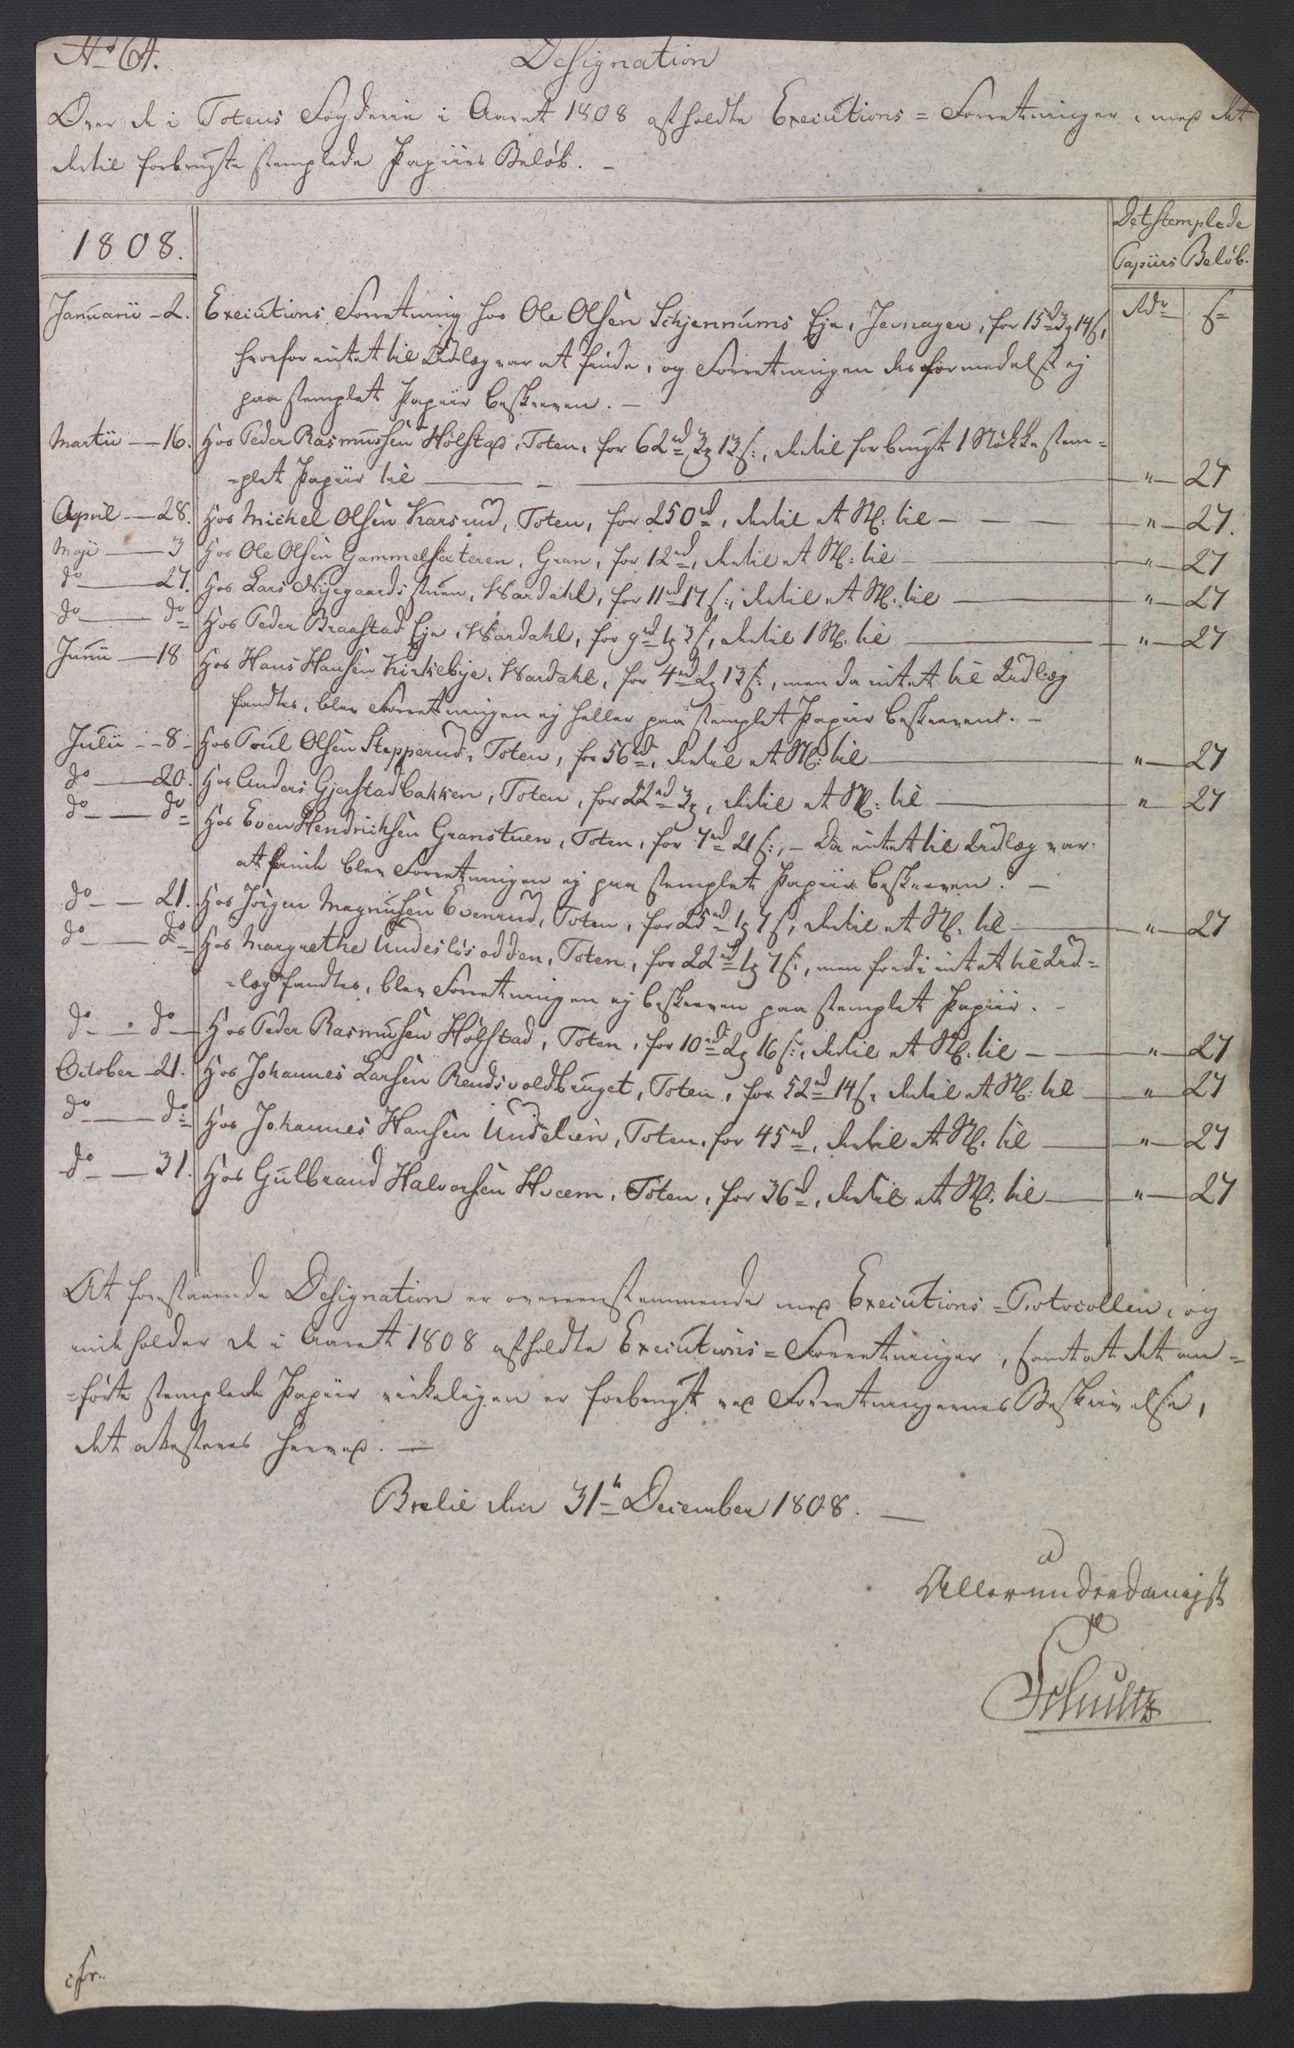 No 64.
Designation
Over de i Totens Fogderie i Aaret 1808 afholdte Executions = Forretninger, med det
dertil forbrugte stemplede Papiirs Beløb. –
1808.
Det stemplede
Papiirs Beløb.
Rdr
s
Januarii - 2. Executions Forretning hos Ole Olsen Schjennums Eje, Jevnager, for 15rd 3 14 s,
hvorfor intet til Udlæg var at finde, og Forretningen desformedelst ej
paa stemplet Papiir beskreven. –
Martii — 16. Hos Peder Rasmussen Hølstad, Toten, for 62rd 3 13 s:, dertil forbrugt 1 Stk stem=
=plet Papiir til — " — 27
April — 28. Hos Michel Olsen Karsrud, Toten, for 250rd, dertil et St: til — " — 27.
Maji — 3 Hos Ole Olsen Gammelsæteren, Gran, for 12rd, dertil et St: til — " — 27
do — 27. Hos Lars Nygaardsstuen, Wardahl, for 11rd 17 s:, dertil et St: til — " — 27
do — do Hos Peder Braastad Eje, Wardahl, for 9rd 1 3 s, dertil 1 St: til — " — 27
Junii — 18 Hos Hans Hansen Kirkebye, Wardahl, for 4rd 2 13 s:, men da intet til Udlæg
fandtes, blev Forretningen ej heller paa stemplet Papiir beskrevent. –
Julii - 8 - Hos Poul Olsen Stepperud, Toten, for 56rd, dertil et St: til — " — 27
do — 20. Hos Anders Gjerstadbakken, Toten, for 22rd 3, dertil et St: til — " 27
do — do Hos Even Hendrichsen Granstuen, Toten, for 7rd 21 s:, – Da intet til Udlæg var
at finde blev Forretningen ej paa stemplet Papiir beskreven. –
do — 21. Hos Jørgen Magnusen Evenrud, Toten, for 25rd 1 7 s, dertil et St. til — " — 27
do — do Hos Margrethe Undesløsodden, Toten, for 22rd 1 7 s:, men fordi intet til Ud=
=læg fandtes, blev Forretningen ej beskreven paa stemplet Papiir. –
do — do Hos Peder Rasmusen Hølstad, Toten, for 10rd 2 16 s:, dertil et St. til — " — 27
October - 21. Hos Johannes Larsen Rendsvoldbruget, Toten, for 52rd 14 s, dertil et St: til — " — 27
do — do Hos Johannes Hansen Undelien, Toten, for 45rd, dertil et St. til — " — 27
do — 31. Hos Gulbrand Halvorsen Hveem, Toten, for 36rd, dertil et St. til — " — 27
At forestaaende Designation er overeensstemmende med Executions = Protocollen, og
indeholder de i Aaret 1808 afholdte Executions = Forretninger, samt at det an=
=førte stemplede Papiir virkeligen er forbrugt ved Forretningernes Beskrivelse,
det attesteres herved. —
Brelie den 31te December 1808. —
Allerunderdanigst
Schultz
cfr.